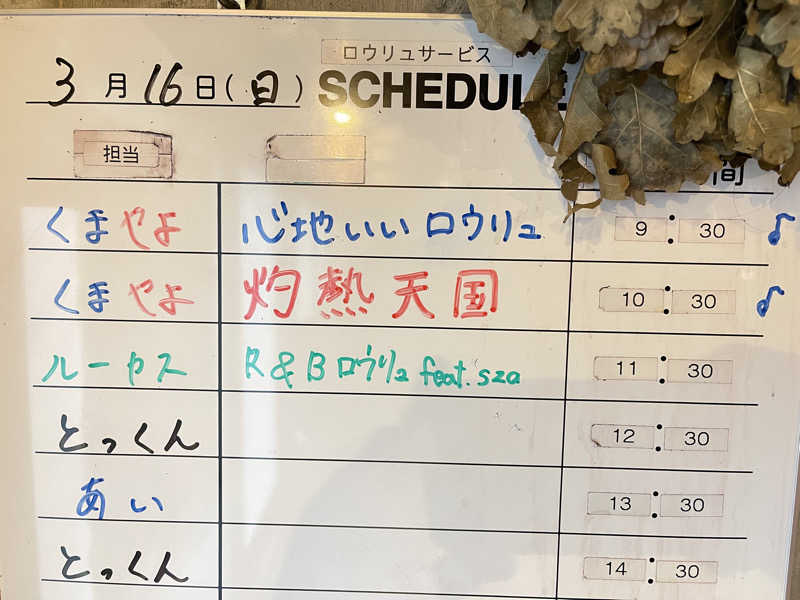 ロウリュサービス
3月16日(日) SCHEDULE
担当 間
くまやよ 心地いいロウリュ 9:30 ♪
くまやよ 灼熱天国 10:30 ♪
ルーカス R&Bロウリュ feat. sza 11:30
とっくん 12:30
あい 13:30
とっくん 14:30